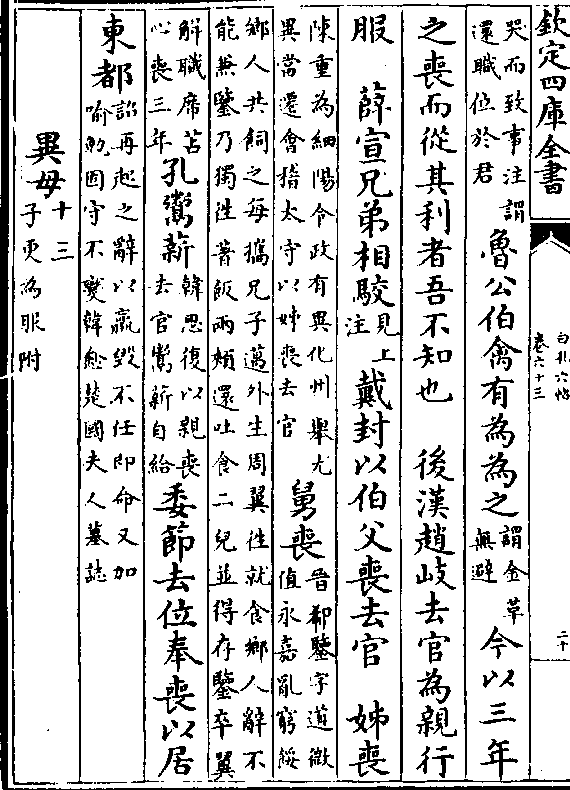 欽定四庫全書
白孔六帖
卷六十三
二十
哭而致事注謂
還職位於君
魯公伯禽有為為之
謂金草
無避
今以三年
之喪而從其利者吾不知也 後漢趙岐去官為親行
服 薛宣兄弟相駮
見上
注
戴封以伯父喪去官 姊喪
陳重為細陽令政有異化州舉尤
異當遷會稽太守以姊喪去官
舅喪
晉郗鑒字道徽
值永嘉亂窮餒
鄉人共飼之每攜兄子邁外生周翼往就食鄉人辭不
能兼鑒乃獨往著飯兩頰還吐食二兒並得存鑒卒翼
解職席苫
心喪三年
孔鬻薪
韓思復以親喪
去官鬻薪自給
委節去位奉喪以居
東都
詔再起之辭以羸毀不任即命又加
喻勉固守不變韓愈楚國夫人墓誌
異母
十三
子更為服附